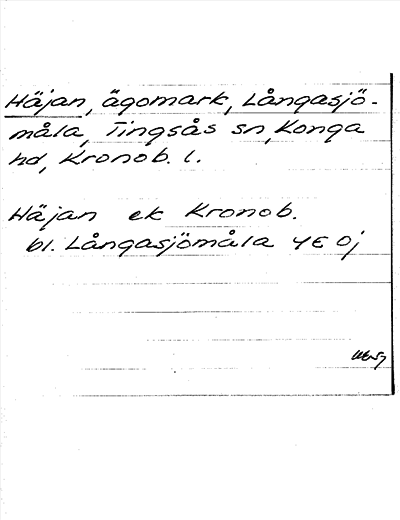 Häjan, ägomark, Långasjö-
måla, Tingsås sn, Konga
hd, Kronob. l.
Häjan ek Kronob.
bl. Långasjömåla 4E 0j